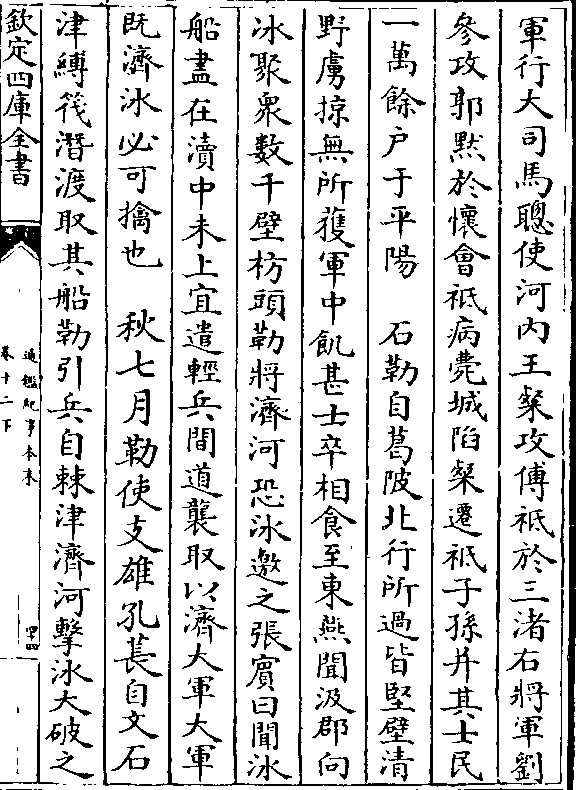 軍行大司馬聰使河内王粲攻傅祗於三渚右將軍劉
參攻郭黙於懷會祗病薨城陷粲遷祗子孫并其士民
一萬餘户于平陽　石勒自葛陂北行所過皆堅壁清
野虜掠無所獲軍中飢甚士卒相食至東燕聞汲郡向
冰聚衆數千壁枋頭勒將濟河恐冰邀之張賓曰聞冰
船盡在瀆中未上宜遣輕兵間道襲取以濟大軍大軍
既濟冰必可擒也　秋七月勒使支雄孔萇自文石
津縛筏潛渡取其船勒引兵自棘津濟河擊冰大破之
欽定四庫全書
通鑑紀事本末
卷十二下
四四